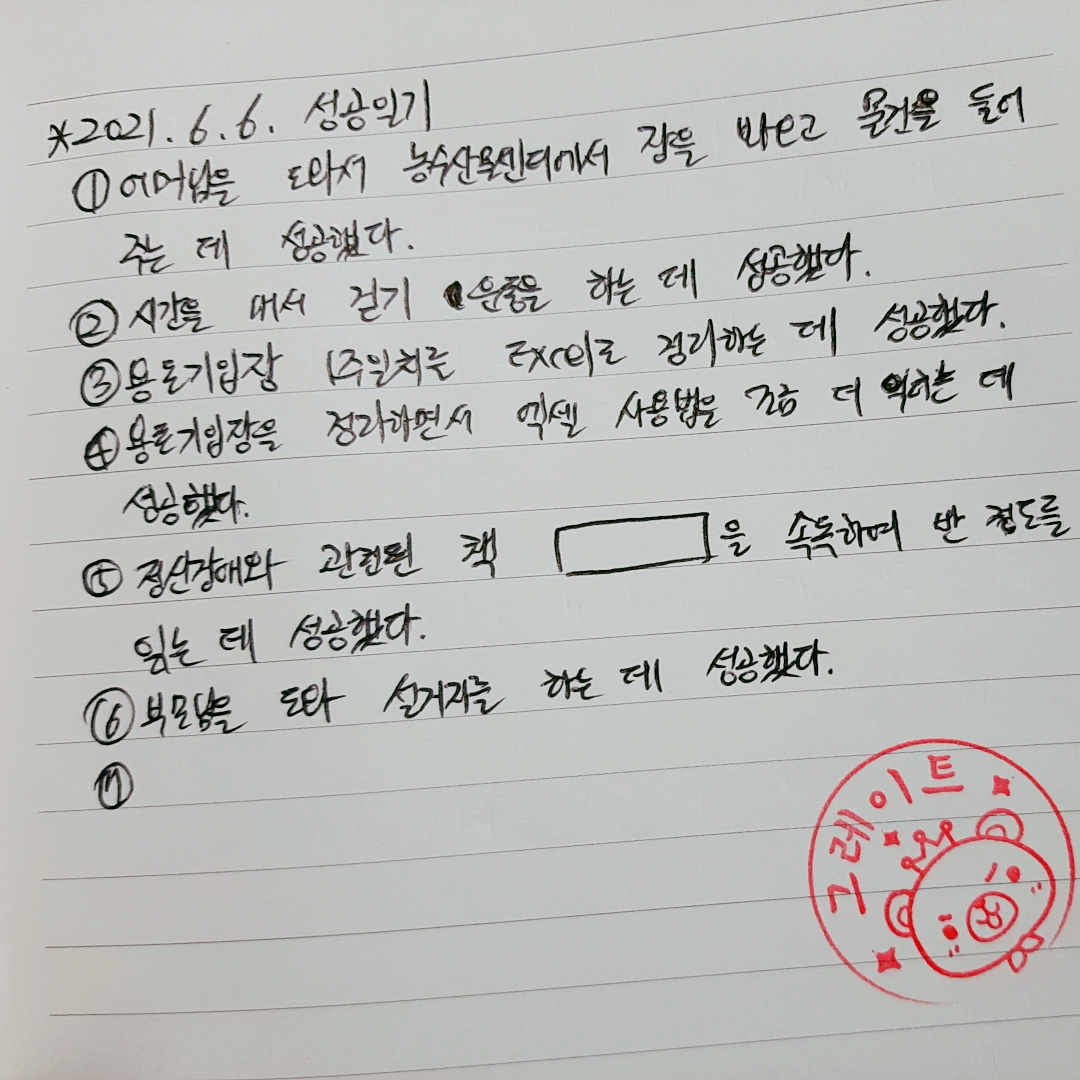 *2021.6.6. 성공일기
① 어머님을 도와서 농수산물센터에서 장을 봐오고 물건을 들어
주는 데 성공했다.
② 시간을 내서 걷기 운동을 하는 데 성공했다.
③ 용돈기입장 1주일치를 Excel로 정리하는 데 성공했다.
④ 용돈기입장을 정리하면서 엑셀 사용법을 조금 더 익히는 데
성공했다.
⑤ 정신장애와 관련된 책 을 속독하여 반 정도를
읽는 데 성공했다.
⑥ 부모님을 도와 설거지를 하는 데 성공했다.
⑦
그레이트